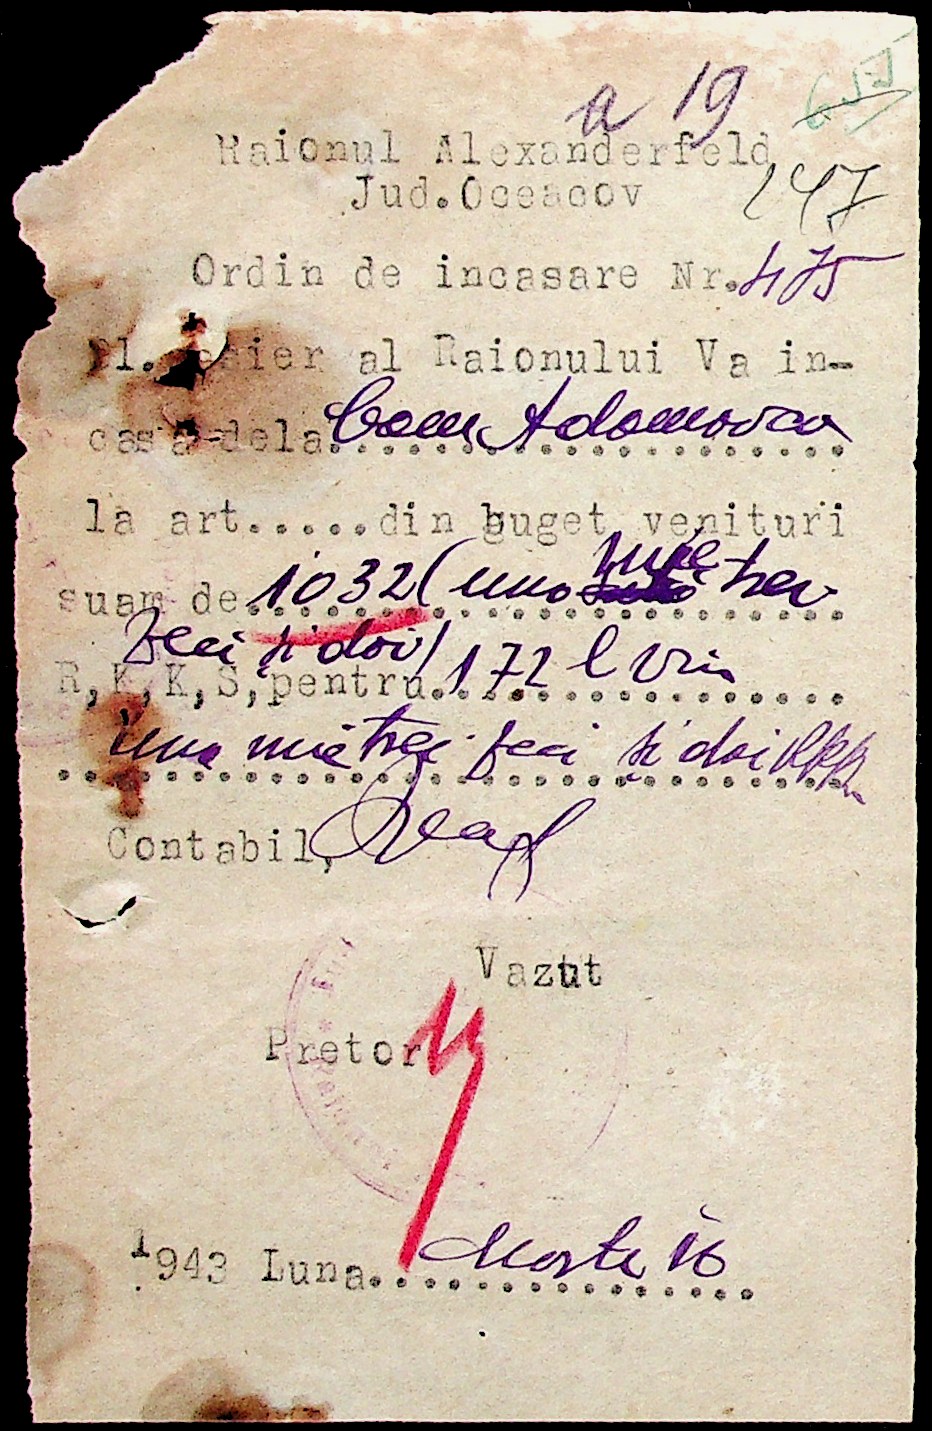 a 19
Raionul Alexanderfeld
247
Jud.Oceacov
Ordin de incasare Nr.475
Dl. Casier al Raionului Va in-
casa dela Com. Adamovca
la art.....din buget venituri
suam de 1032 (una mie trei
zeci și doi) 
R,K,K,S,pentru 172 l vin
una mie trei zeci și doi RKKS
Contabil,
Vazut
Pretor
1943 Luna Marte 16